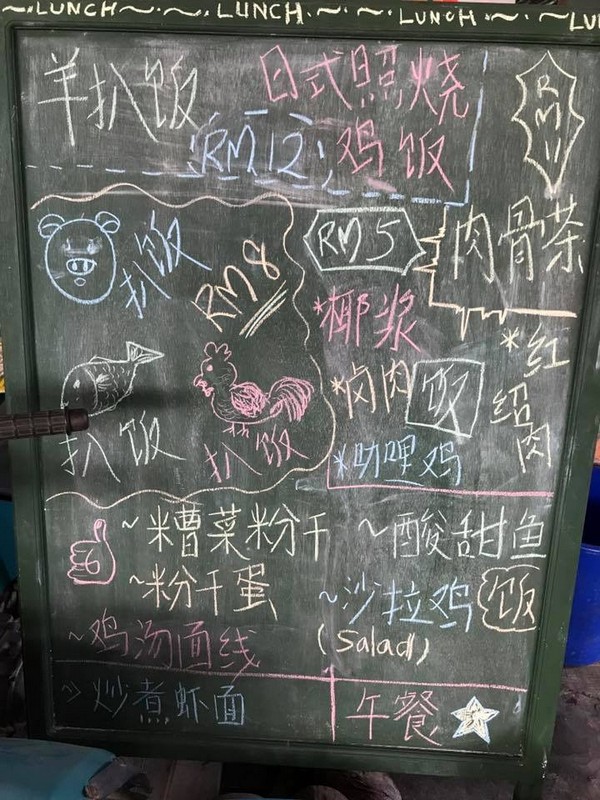 LUNCH LUNCH LUNCH LU
羊扒饭
日式照烧
鸡饭
RM12
RM11
扒饭
RM8
扒饭
扒饭
RM5
肉骨茶
*椰浆
*卤肉饭
*咖哩鸡
*红
绍
肉
6
~糟菜粉干
~粉干蛋
~鸡汤面线
~酸甜鱼
~沙拉鸡饭
(Salad)
~炒煮虾面
午餐